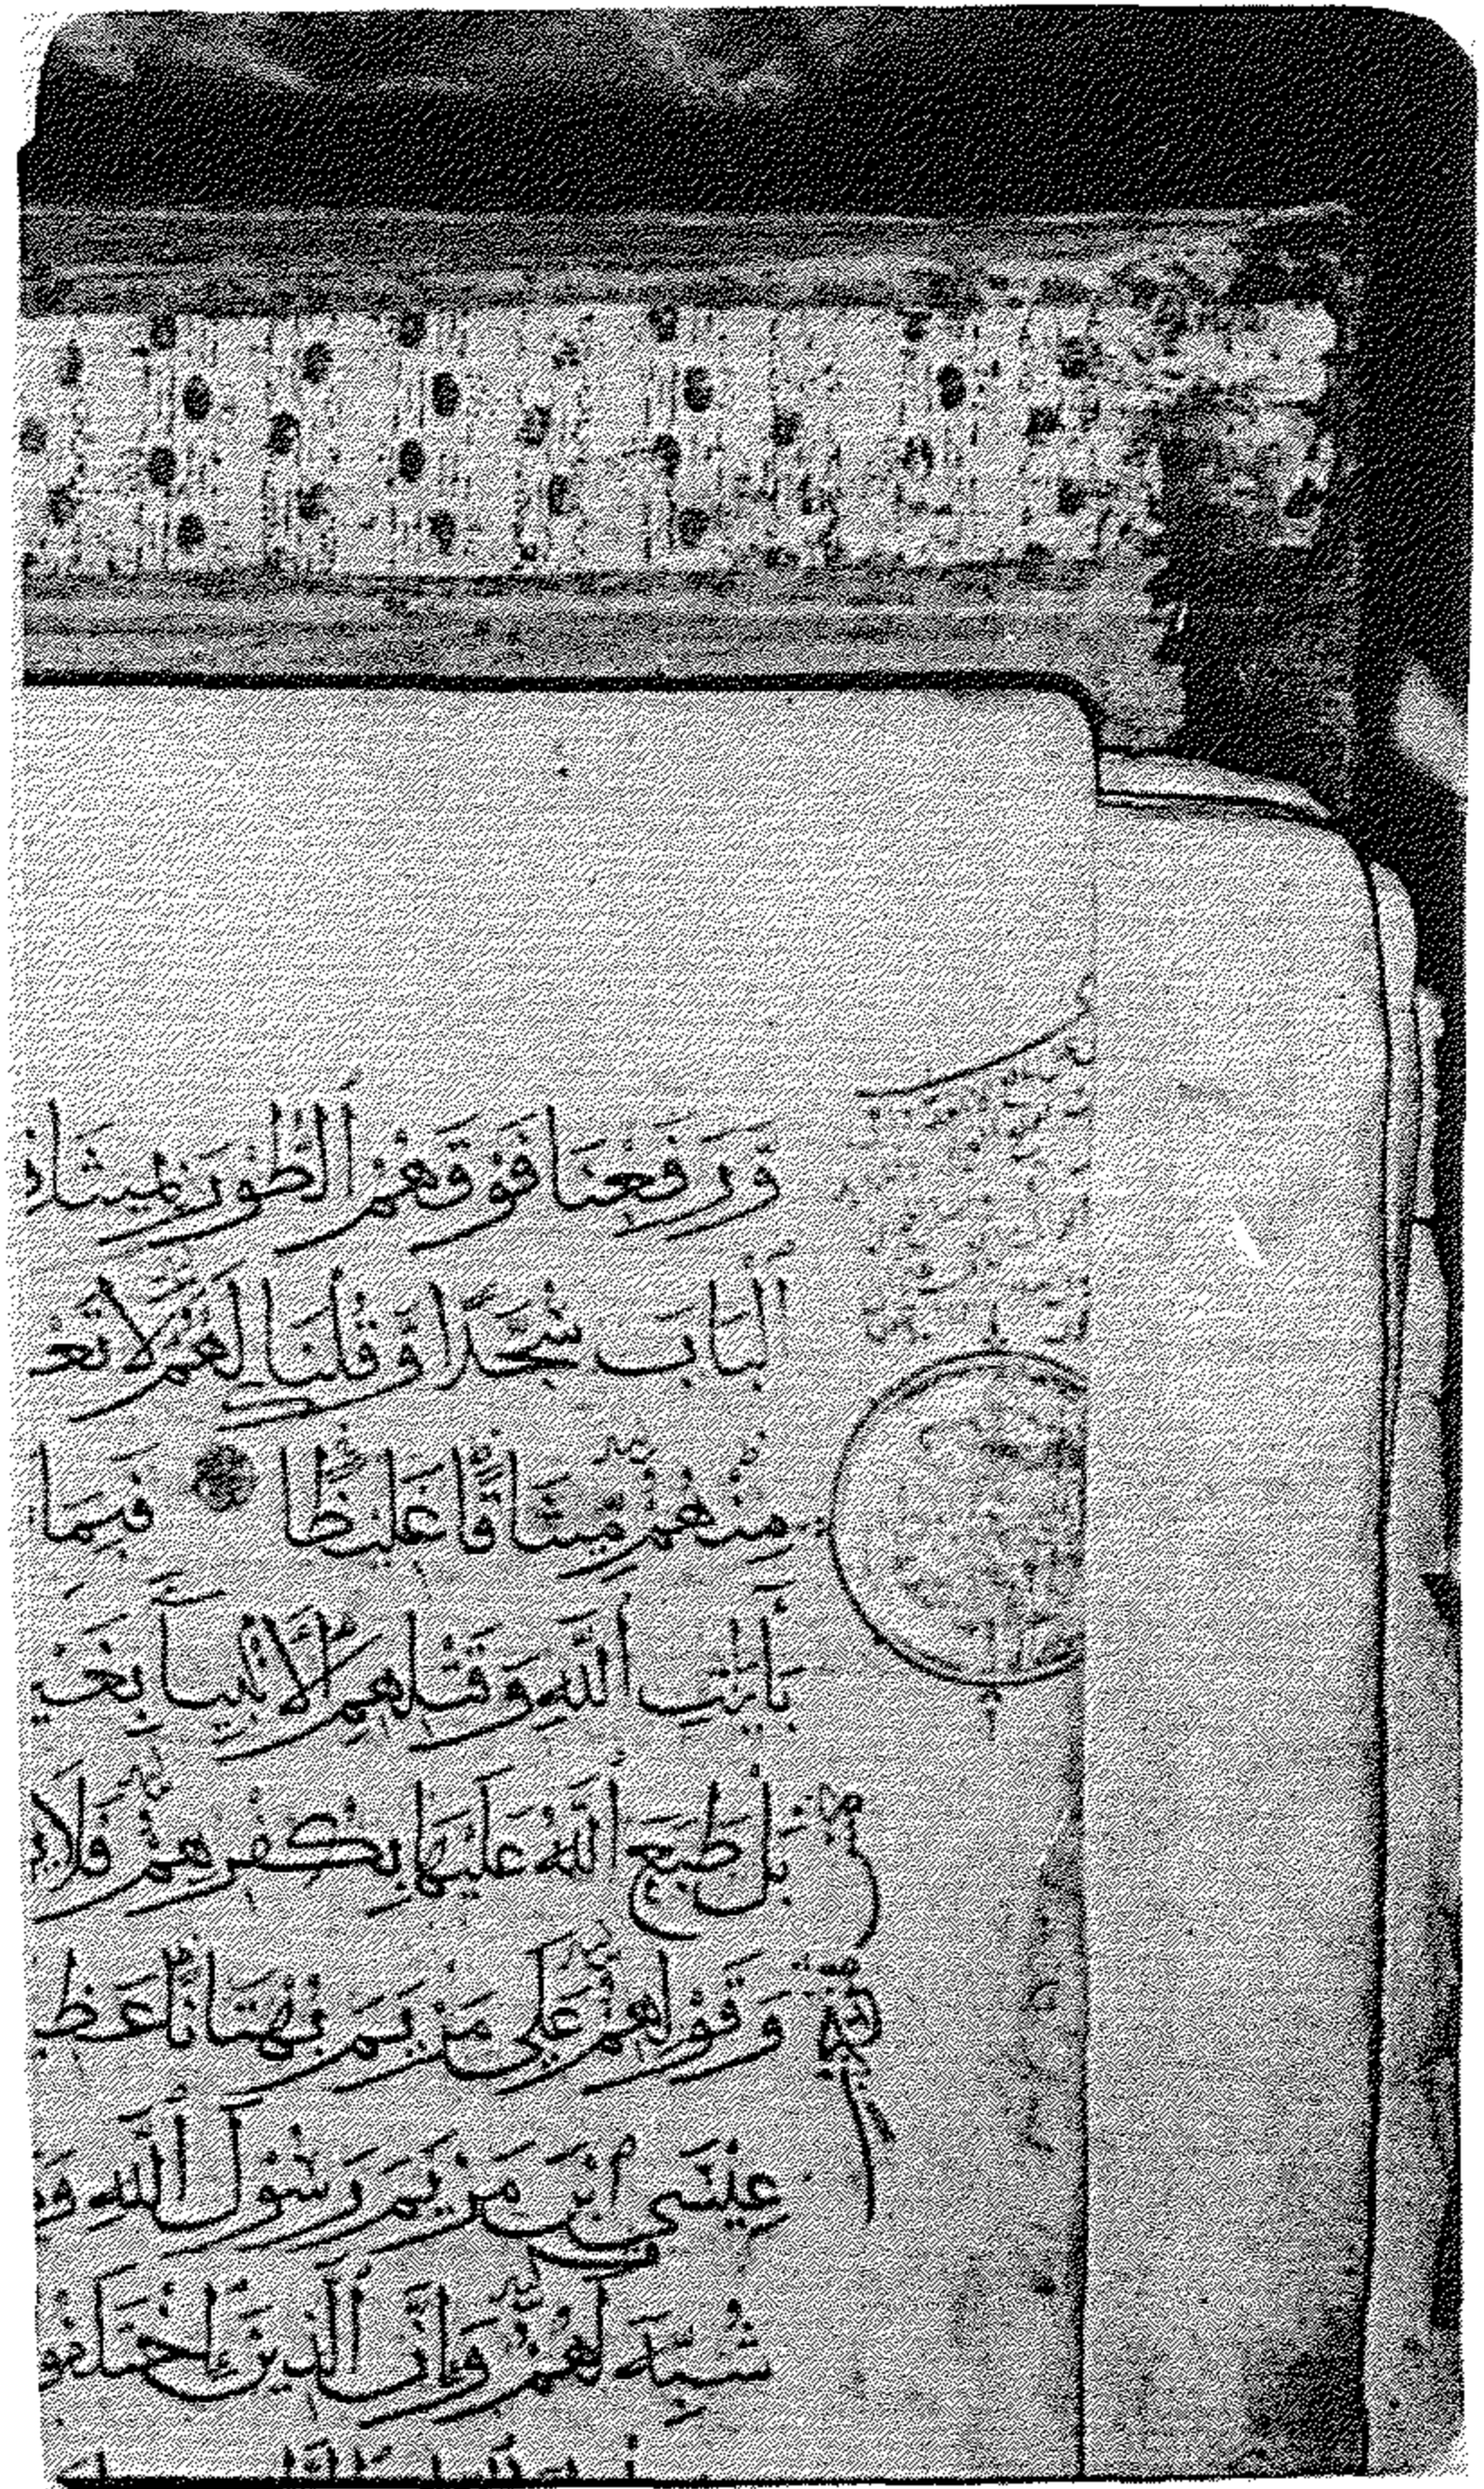 وَرَفَعْنَا فَوْقَهُمُ ٱلطُّورَ بِمِيثَٰا
ٱلْبَابَ سُجَّدًا وَقُلْنَا لَهُمْ لَا تَعْ
مِنْهُمْ مِيثَاقًا غَلِيظًا فَبِمَا
بِـَٔايَٰتِ ٱللَّهِ وَقَتْلِهِمُ ٱلْأَنْبِيَآءَ بِغَيْ
بَلْ طَبَعَ ٱللَّهُ عَلَيْهَا بِكُفْرِهِمْ فَلَا يُ
وَقَوْلِهِمْ عَلَىٰ مَرْيَمَ بُهْتَانًا عَظِ
عِيسَى ٱبْنَ مَرْيَمَ رَسُولَ ٱللَّهِ وَمَ
شُبِّهَ لَهُمْ وَإِنَّ ٱلَّذِينَ ٱخْتَلَفُو